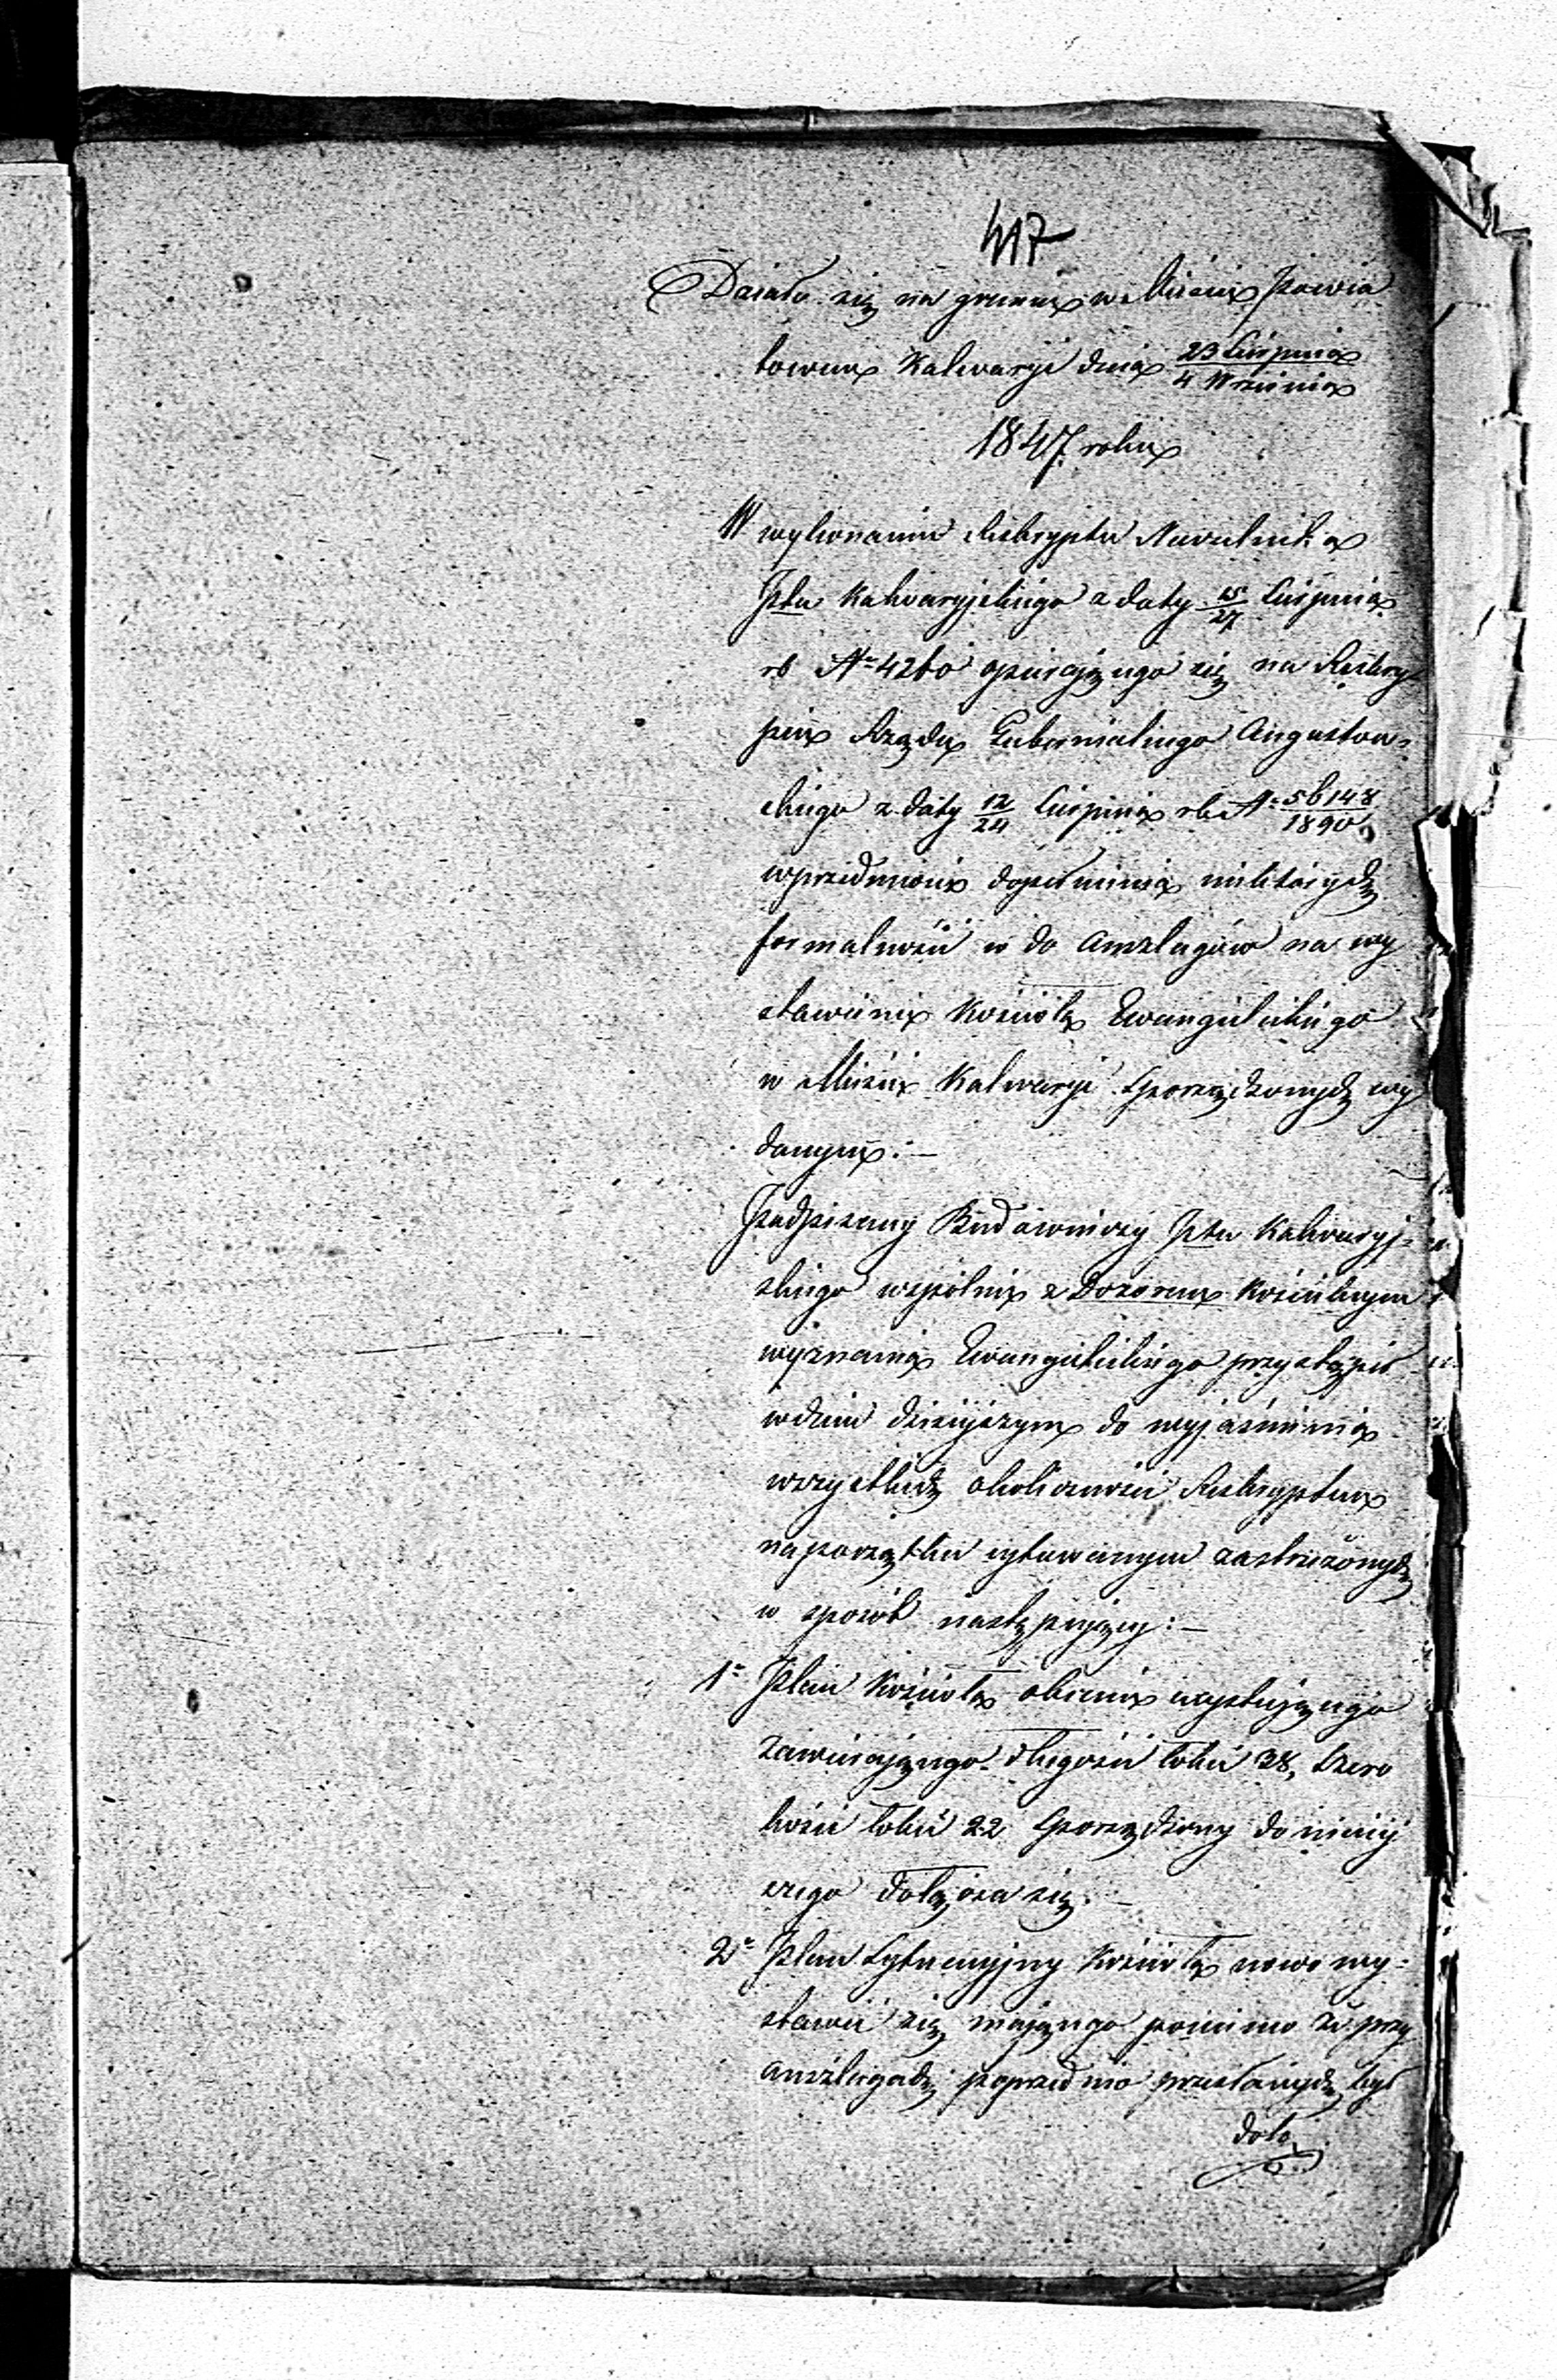 417
Działo się na gruncie w Mieście Powia
towem Kalwaryi dnia 23 Sierpnia / 4 Września
1847 roku
W wykonaniu Reskryptu Naczelnika
Ptu Kalwaryjskiego z daty 15/27 Sierpnia
rb No 4260 opierającego się na Reskry
pcie Rządu Gubernialnego Augustow-
skiego z daty 12/24 Sierpnia rb No 56148/1890
w przedmiocie dopełnienia niektórych
formalności co do Anszlagów na wy
stawienie Kościoła Ewangielickiego
w Mieście Kalwaryi Sporządzonych wy
danym:—
Podpisany Budowniczy Ptu Kalwaryj-
skiego wspólnie z Dozorem Kościelnym
wyznania Ewangielickiego przystąpił
w dniu dzisiejszym do wyjaśnienia
wszystkich okoliczności Reskryptem
na początku cytowanym zastrzeżonych
w sposób następujący:—
1o Plan Kościoła obecnie exystującego
zawierającego długości łokci 38, Szero
kości łokci 22 Sporządzony do niniej
szego dołącza się.—
2o Plan Sytuacyjny Kościoła nowo wy-
stawić się mającego pomimo że przy
anszlagach poprzednio przesłanych był
dołą